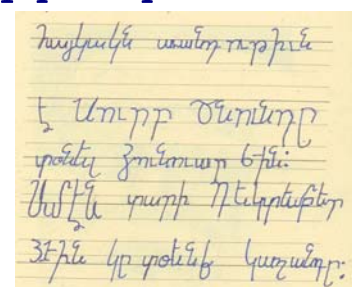 Հայկական աւանդութիւն
է Սուրբ Ծնունդը
տօնել Յունուար 6ին։
Ամէն տարի Դեկտեմբեր
31ին կը տօնենք կաղանդը։